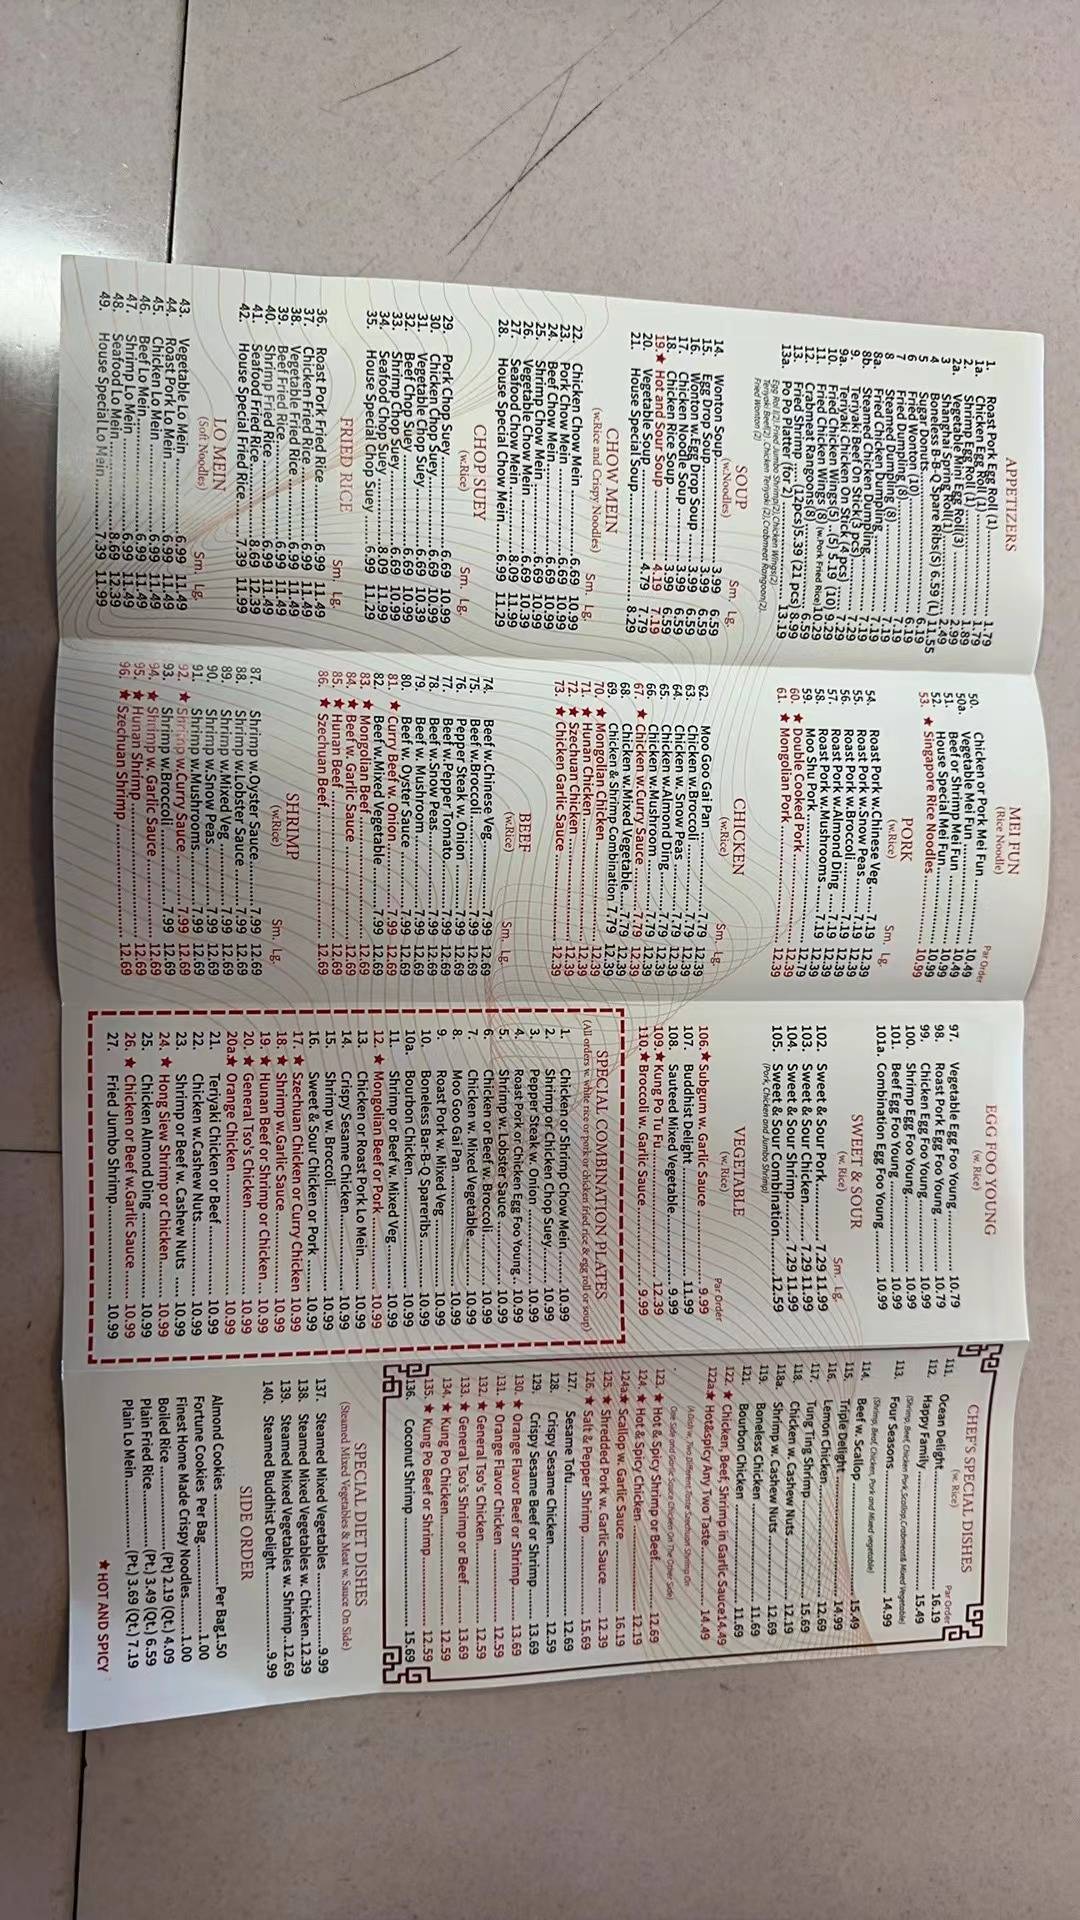 APPETIZERS
1. Roast Pork Egg Roll (1)............1.79
1a. Chicken Egg Roll (1)............1.79
2. Shrimp Egg Roll (1)............1.89
2a. Vegetable Mini Egg Roll(3)............2.99
3. Shanghai Spring Roll(1)............2.49
4. Boneless B-B-Q Spare Ribs(S) 6.59 (L) 11.55
5. Sugar Donuts............6.19
6. Fried Wonton (10)............6.19
7. Fried Dumpling (8)............7.19
8. Steamed Dumpling (8)............7.19
8a. Fried Chicken Dumpling............7.19
8b. Steamed Chicken Dumpling............7.19
9. Teriyaki Beef On Stick (3 pcs)............7.29
9a. Teriyaki Chicken On Stick (4 pcs)............7.29
10. Fried Chicken Wings(5) (5) 5.19 (10) 9.20
11. Fried Chicken Wings (8) (w.Pork Fried Rice)10.29
12. Crabmeat Rangoons(8)............6.59
13. Fried Shrimp............(12pcs)5.39 (21 pcs) 8.99
13a. Po Po Platter (for 2)............13.19
Egg Roll(2).Fried Jumbo Shrimp(2).Chicken Wings(2)
Teriyaki Beef(2).Chicken Teriyaki (2).Crabmeat Rangoon(2).
Fried Wonton (2)
SOUP
(w.Noodles)
Sm. Lg.
14. Wonton Soup............3.99 6.59
15. Egg Drop Soup............3.99 6.59
16. Wonton w.Egg Drop Soup............3.99 6.59
17. Chicken Noodle Soup............3.99 6.59
18. Chicken Rice Soup............3.99 6.59
19.★ Hot and Sour Soup............4.19 7.19
20. Vegetable Soup............4.79 7.79
21. House Special Soup............8.29
CHOW MEIN
(w.Rice and Crispy Noodles)
Sm. Lg.
22. Chicken Chow Mein............6.69 10.99
23. Pork Chow Mein............6.69 10.99
24. Beef Chow Mein............6.69 10.99
25. Shrimp Chow Mein............6.69 10.99
26. Vegetable Chow Mein............6.69 10.39
27. Seafood Chow Mein............8.09 11.99
28. House Special Chow Mein............6.99 11.29
CHOP SUEY
(w.Rice)
Sm. Lg.
29. Pork Chop Suey............6.69 10.99
30. Chicken Chop Suey............6.69 10.99
31. Vegetable Chop Suey............6.69 10.39
32. Beef Chop Suey............6.69 10.99
33. Shrimp Chop Suey............6.69 10.99
34. Seafood Chop Suey............8.09 11.99
35. House Special Chop Suey............6.99 11.29
FRIED RICE
Sm. Lg.
36. Roast Pork Fried Rice............6.99 11.49
37. Chicken Fried Rice............6.99 11.49
38. Vegetable Fried Rice............6.99 11.49
39. Beef Fried Rice............6.99 11.49
40. Shrimp Fried Rice............6.99 11.49
41. Seafood Fried Rice............8.69 12.39
42. House Special Fried Rice............7.39 11.99
LO MEIN
(Soft Noodles)
Sm. Lg.
43. Vegetable Lo Mein............6.99 11.49
44. Roast Pork Lo Mein............6.99 11.49
45. Chicken Lo Mein............6.99 11.49
46. Beef Lo Mein............6.99 11.49
47. Shrimp Lo Mein............6.99 11.49
48. Seafood Lo Mein............8.69 12.39
49. House Special Lo Mein............7.39 11.99
MEI FUN
(Rice Noodle)
Par Order
50. Chicken or Pork Mei Fun............10.49
50a. Vegetable Mei Fun............10.49
51. Beef or Shrimp Mei Fun............10.99
52. House Special Mei Fun............10.99
53. ★ Singapore Rice Noodles............10.99
PORK
(w.Rice)
Sm. Lg.
54. Roast Pork w.Chinese Veg............7.19 12.39
55. Roast Pork w.Snow Peas............7.19 12.39
56. Roast Pork w.Broccoli............7.19 12.39
57. Roast Pork w.Almond Ding............7.19 12.39
58. Roast Pork w.Mushrooms............7.19 12.39
59. Moo Shu Pork............12.79
60. ★ Double Cooked Pork............12.39
61. ★ Mongolian Pork............12.39
CHICKEN
(w.Rice)
62. Moo Goo Gai Pan............7.79 12.39
63. Chicken w.Broccoli............7.79 12.39
64. Chicken w. Snow Peas............7.79 12.39
65. Chicken w.Almond Ding............7.79 12.39
66. Chicken w.Mushroom............7.79 12.39
67. ★ Chicken w.Curry Sauce............7.79 12.39
68. Chicken w.Mixed Vegetable............7.79 12.39
69. Chicken & Shrimp Combination 7.79 12.39
70. ★ Mongolian Chicken............12.39
71. ★ Hunan Chicken............12.39
72. ★ Szechuan Chicken............12.39
73. ★ Chicken Garlic Sauce............12.39
BEEF
(w.Rice)
Sm. Lg.
74. Beef w.Chinese Veg............7.99 12.69
75. Beef w.Broccoli............7.99 12.69
76. Pepper Steak w. Onion............7.99 12.69
77. Beef w.Pepper Tomato............7.99 12.69
78. Beef w.Snow Peas............7.99 12.69
79. Beef w.Mushroom............7.99 12.69
80. Beef w. Oyster Sauce............7.99 12.69
81. ★ Curry Beef w. Onion............7.99 12.69
82. Beef w.Mixed Vegetable............7.99 12.69
83. ★ Mongolian Beef............12.69
84. ★ Beef w. Garlic Sauce............12.69
85. ★ Hunan Beef............12.69
86. ★ Szechuan Beef............12.69
SHRIMP
(w.Rice)
Sm. Lg.
87. Shrimp w.Oyster Sauce............7.99 12.69
88. Shrimp w.Lobster Sauce............7.99 12.69
89. Shrimp w.Mixed Veg............7.99 12.69
90. Shrimp w.Snow Peas............7.99 12.69
91. Shrimp w.Mushrooms............7.99 12.69
92. ★ Shrimp w.Curry Sauce............7.99 12.69
93. Shrimp w.Broccoli............7.99 12.69
94. ★ Shrimp w. Garlic Sauce............12.69
95. ★ Hunan Shrimp............12.69
96. ★ Szechuan Shrimp............12.69
EGG FOO YOUNG
(w. Rice)
97. Vegetable Egg Foo Young............10.79
98. Roast Pork Egg Foo Young............10.79
99. Chicken Egg Foo Young............10.99
100. Shrimp Egg Foo Young............10.99
101. Beef Egg Foo Young............10.99
101a. Combination Egg Foo Young............10.99
SWEET & SOUR
(w. Rice)
Sm. Lg.
102. Sweet & Sour Pork............7.29 11.99
103. Sweet & Sour Chicken............7.29 11.99
104. Sweet & Sour Shrimp............7.29 11.99
105. Sweet & Sour Combination............12.59
(Pork, Chicken and Jumbo Shrimp)
VEGETABLE
(w. Rice)
Par Order
106.★ Subgum w. Garlic Sauce............9.99
107. Buddhist Delight............11.99
108. Sauteed Mixed Vegetable............9.99
109.★ Kung Po Tu Fu............12.39
110.★ Broccoli w. Garlic Sauce............9.99
SPECIAL COMBINATION PLATES
(All orders w. white rice or pork or chicken fried rice & egg roll or soup)
1. Chicken or Shrimp Chow Mein............10.99
2. Shrimp or Chicken Chop Suey............10.99
3. Pepper Steak w. Onion............10.99
4. Roast Pork or Chicken Egg Foo Young............10.99
5. Shrimp w. Lobster Sauce............10.99
6. Chicken or Beef w. Broccoli............10.99
7. Chicken w. Mixed Vegetable............10.99
8. Moo Goo Gai Pan............10.99
9. Roast Pork w. Mixed Veg............10.99
10. Boneless Bar-B-Q Spareribs............10.99
10a. Bourbon Chicken............10.99
11. Shrimp or Beef w. Mixed Veg............10.99
12. ★ Mongolian Beef or Pork............10.99
13. Chicken or Roast Pork Lo Mein............10.99
14. Crispy Sesame Chicken............10.99
15. Shrimp w. Broccoli............10.99
16. Sweet & Sour Chicken or Pork............10.99
17. ★ Szechuan Chicken or Curry Chicken 10.99
18. ★ Shrimp w.Garlic Sauce............10.99
19. ★ Hunan Beef or Shrimp or Chicken............10.99
20. ★ General Tso's Chicken............10.99
20a★ Orange Chicken............10.99
21. Teriyaki Chicken or Beef............10.99
22. Chicken w.Cashew Nuts............10.99
23. Shrimp or Beef w. Cashew Nuts............10.99
24. ★ Hong Slew Shrimp or Chicken............10.99
25. Chicken Almond Ding............10.99
26. ★ Chicken or Beef w.Garlic Sauce............10.99
27. Fried Jumbo Shrimp............10.99
CHEF'S SPECIAL DISHES
(w. Rice)
Par Order
111. Ocean Delight............16.19
112. Happy Family............15.49
(Shrimp, Beef, Chicken Pork, Scallop, Crabmeat& Mixed Vegetable)
113. Four Seasons............14.99
(Shrimp, Beef, Chicken, Pork and Mixed vegetable)
114. Beef w. Scallop............15.49
115. Triple Delight............14.99
116. Lemon Chicken............12.69
117. Tung Ting Shrimp............15.69
118. Chicken w. Cashew Nuts............12.19
118a. Shrimp w. Cashew Nuts............12.69
119. Boneless Chicken............11.69
121. Bourbon Chicken............11.69
122. ★ Chicken, Beef, Shrimp in Garlic Sauce14.49
122a★ Hot&spicy Any Two Taste............14.49
(A Dish w. Two Different Taste Szechuan Shrimp On
One Side and Garlic Sauce Chicken On The Other Side)
123. ★ Hot & Spicy Shrimp or Beef............12.69
124. ★ Hot & Spicy Chicken............12.19
124a★ Scallop w. Garlic Sauce............16.19
125. ★ Shredded Pork w. Garlic Sauce............12.39
126. ★ Salt & Pepper Shrimp............15.69
127. Sesame Tofu............12.69
128. Crispy Sesame Chicken............12.59
129. Crispy Sesame Beef or Shrimp............13.69
130. ★ Orange Flavor Beef or Shrimp............13.69
131. ★ Orange Flavor Chicken............12.59
132. ★ General Tso's Chicken............12.59
133. ★ General Tso's Shrimp or Beef............13.69
134. ★ Kung Po Chicken............12.59
135. ★ Kung Po Beef or Shrimp............12.59
136. Coconut Shrimp............15.69
SPECIAL DIET DISHES
(Steamed Mixed Vegetables & Meat w. Sauce On Side)
137. Steamed Mixed Vegetables............9.99
138. Steamed Mixed Vegetables w. Chicken.12.39
139. Steamed Mixed Vegetables w. Shrimp..12.69
140. Steamed Buddhist Delight............9.99
SIDE ORDER
Almond Cookies............Per Bag1.50
Fortune Cookies Per Bag............1.00
Finest Home Made Crispy Noodles............1.00
Boiled Rice............(Pt) 2.19 (Qt.) 4.09
Plain Fried Rice............(Pt.) 3.49 (Qt.) 6.59
Plain Lo Mein............(Pt.) 3.69 (Qt.) 7.19
★ HOT AND SPICY